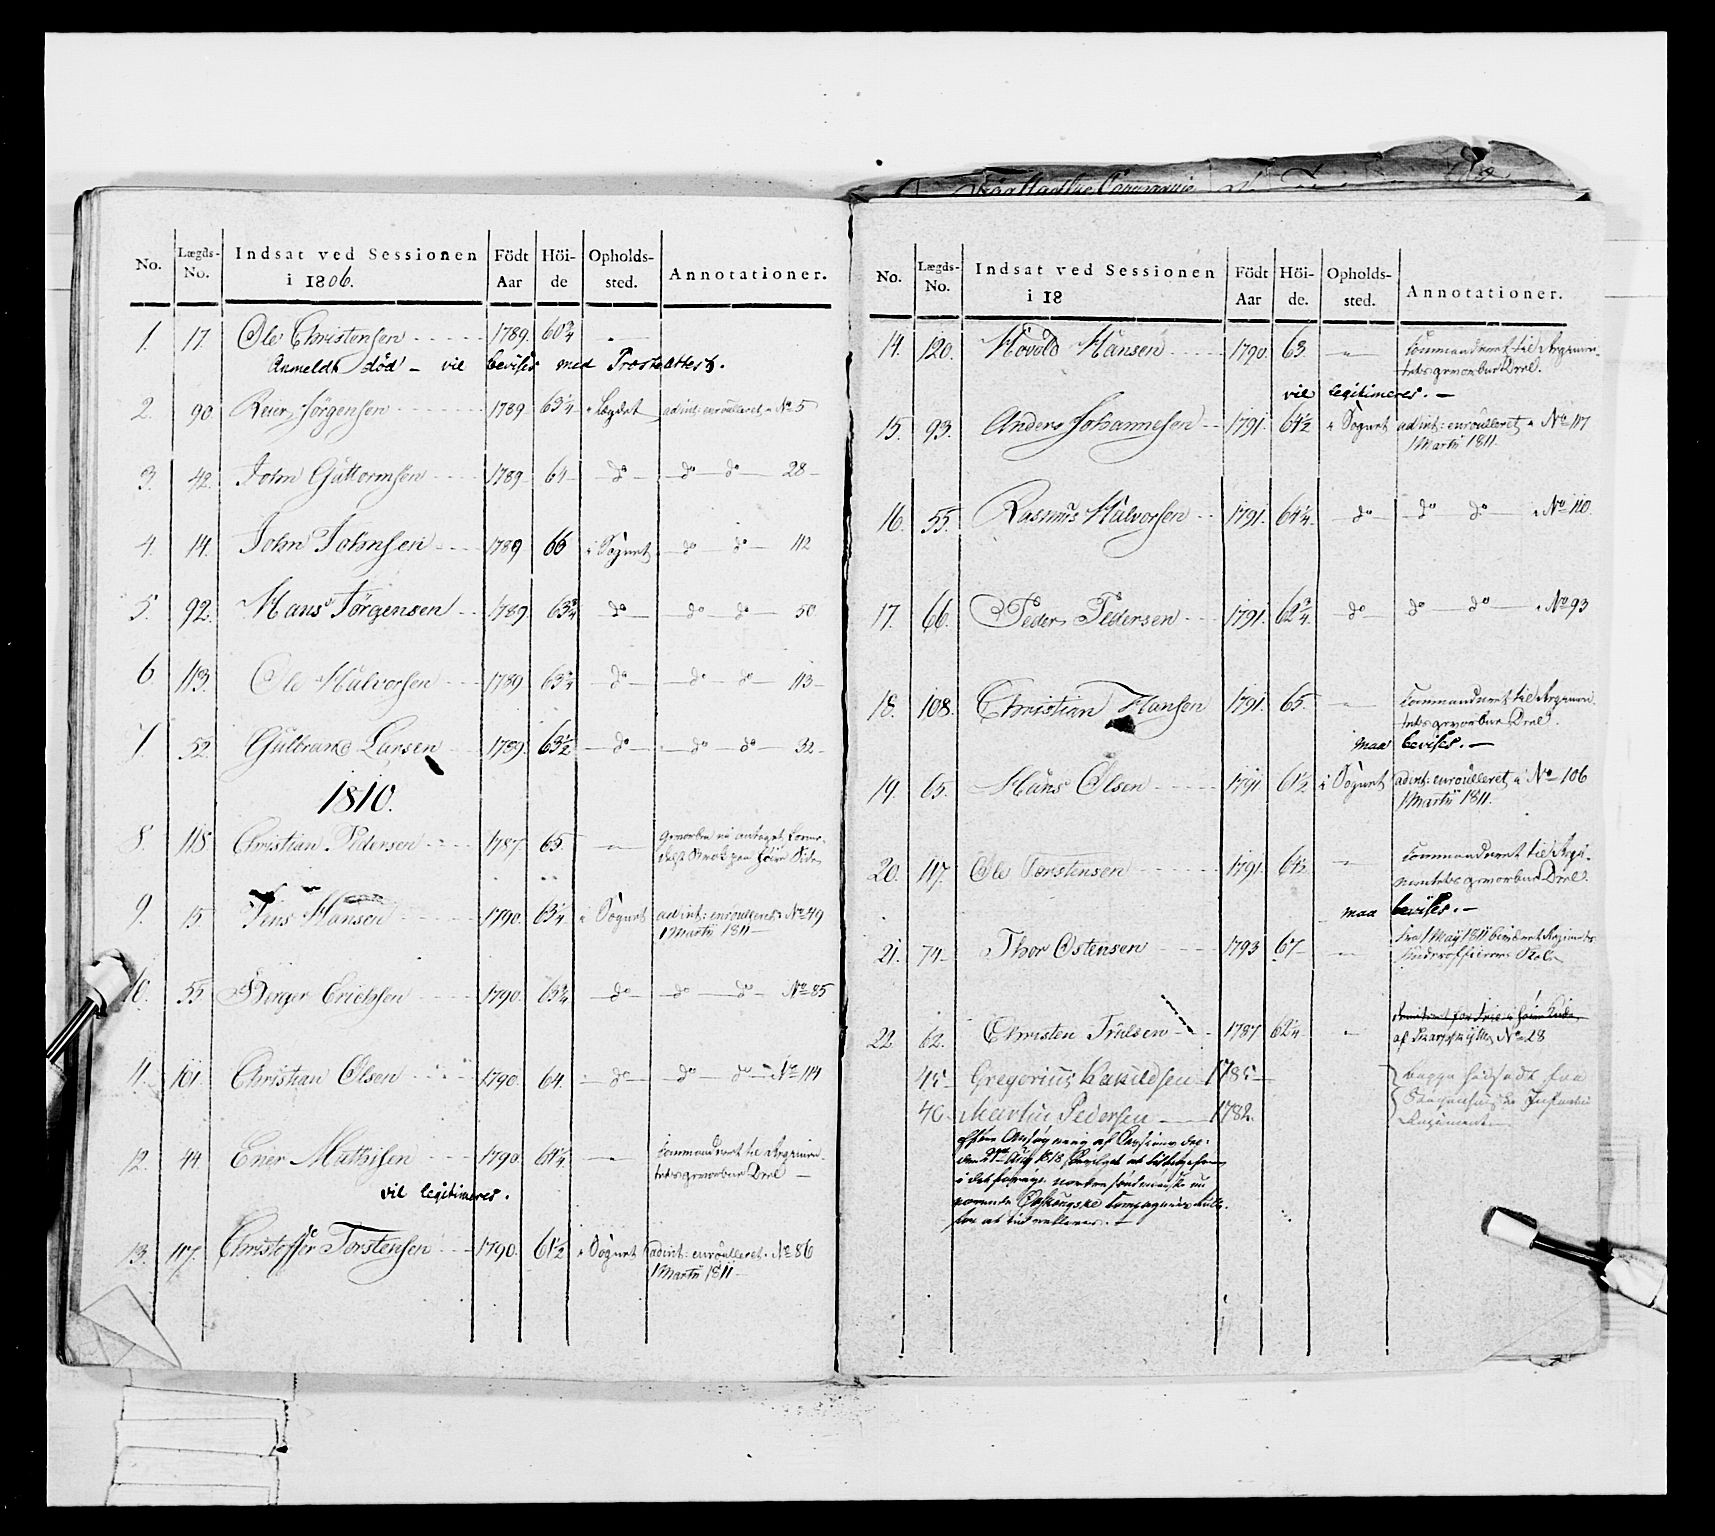 No. Lægds-No. Indsat ved Sessionen i 1806. Födt Aar Höide Opholdssted. Annotationer.
1. 17 Ole Christensen 1789. 60¾ "
Anmeldt död – vil bevises med Præsteattest.
2. 90 Reier Jörgensen 1789 63¼ i Lægdet ad int: enroulleret " No 5
3. 42 John Guttormsen 1789 61 do do do 28
4. 14. John Johnsen 1789 66 i Sognet do do 112
5. 92. Hans Jörgensen 1789 63¾ do do do 50
6 113. Ole Halvorsen 1789 63¾ do do do 113
7 52. Gulbrand Larsen 1789. 63½ do do do 32
1810.
8. 118 Christian Pedersen 1787. 65. "
9. 15 Jens Hansen 1790. 63¼ i Sognet ad int: enroulleret " No 49
1 Martii 1811
10. 55 Berger Erichsen 1790. 63¼ do do do No 85
11. 101. Christian Olsen 1790. 64 do do do No 114
12. 44 Ener Mathisen 1790 61¼ " Commanderet til Regimentets gevorbne Deel
vil legitimeres.
13. 117. Christoffer Torstensen 1790. 61½ i Sognet ad int: enroulleret " No 86
1 Martii 1811
No. Lægds-No. Indsat ved Sessionen i 18 Födt Aar Höide. Opholdssted. Annotationer.
14. 120. Hovold Hansen 1790. 63 " Commanderet til Regimentets gevorbne Deel.
vil legitimeres. –
15. 93. Anders Johannesen 1791. 64½ i Sognet ad int: enroulleret " No 117
1 Martii 1811.
16. 55. Rasmus Halvorsen 1791. 64¼. do do do " No 110.
17. 66. Peder Pedersen 1791. 62¾. do do do " No 93
18. 108. Christian Hansen 1791. 65. " Commanderet til Regimentets gevorbne Deel.
maa bevises. –
19. 65. Hans Olsen 1791 61½ i Sognet ad int: enroulleret " No 106
1 Martii 1811.
20. 117. Ole Torstensen 1791. 64½ " Commanderet til Regimentets gevorbne Deel.
maa bevises. –
21. 74 Thor Ostensen 1793 67 " fra 1 May 1811 Regiments
Underofficeer Skole
22 62. Christen Trulsen 1787 62¼ "
af No 28
45 Gregorius 1785
40 Martin Pedersen 1782.
Begge
Infanterie
Regiment
efter af Sessions
den 21de Aug 1818
i det norden
Compagnie
for at